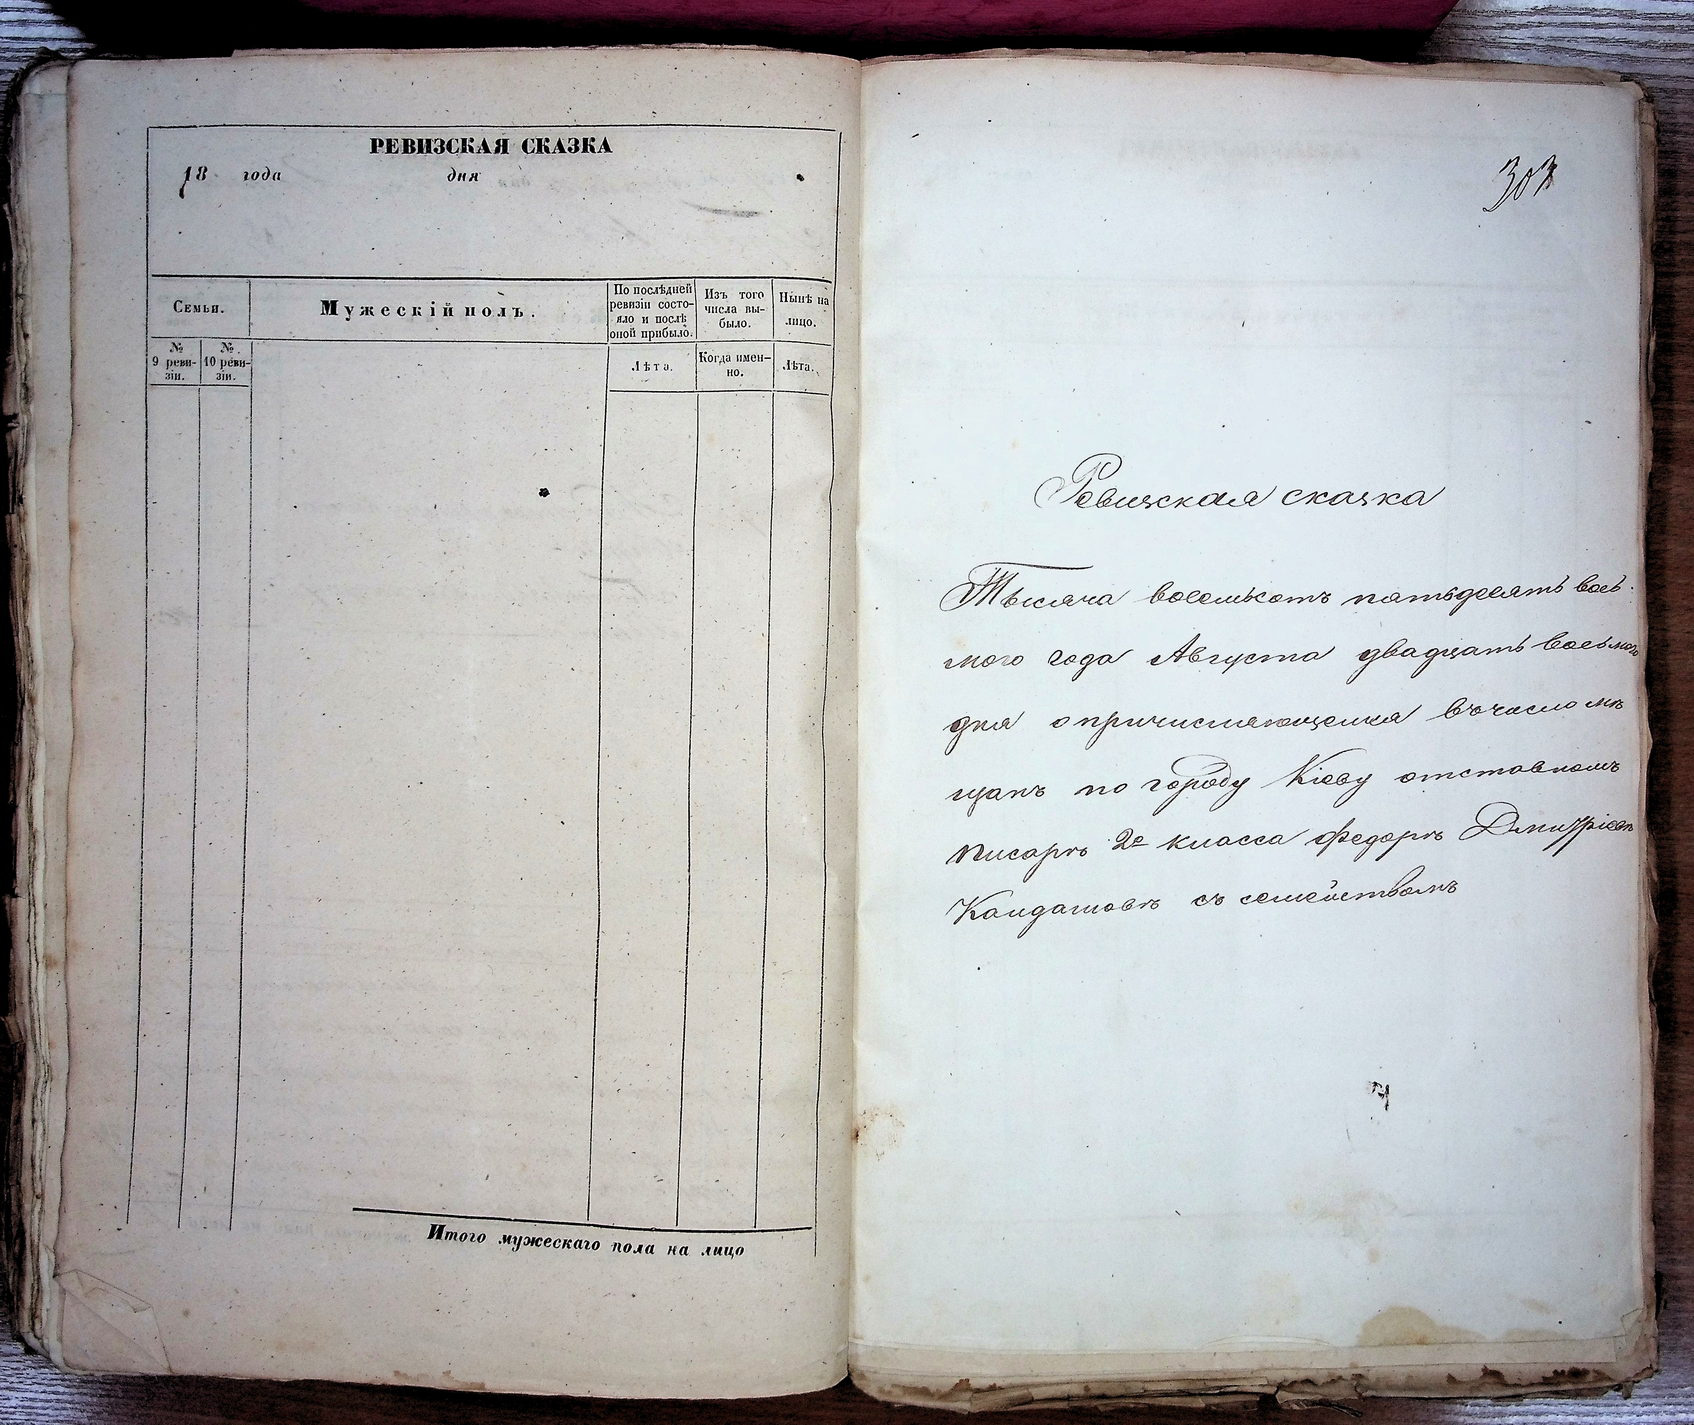 РЕВИЗСКАЯ СКАЗКА
18 года дня
Семьи.
Мужескій полъ.
По послѣдней
ревизіи состо-
яло и послѣ
оной прибыло.
Изъ того
числа вы-
было.
Нынѣ на
лицо.
№
9 реви-
зіи.
№
10 реви-
зіи.
Лѣта.
Когда имен-
но.
Лѣта.
Итого мужескаго пола на лицо
303
Ревизская сказка
Тысяча восемьсотъ пятьдесятъ вось
мого года Августа двадцать восьмого
дня о причисляющемся въ число мѣ
щанъ по городу Кіеву отставномъ
писарѣ 2е класса Федорѣ Дмитріевѣ
Кандашовѣ съ семействомъ